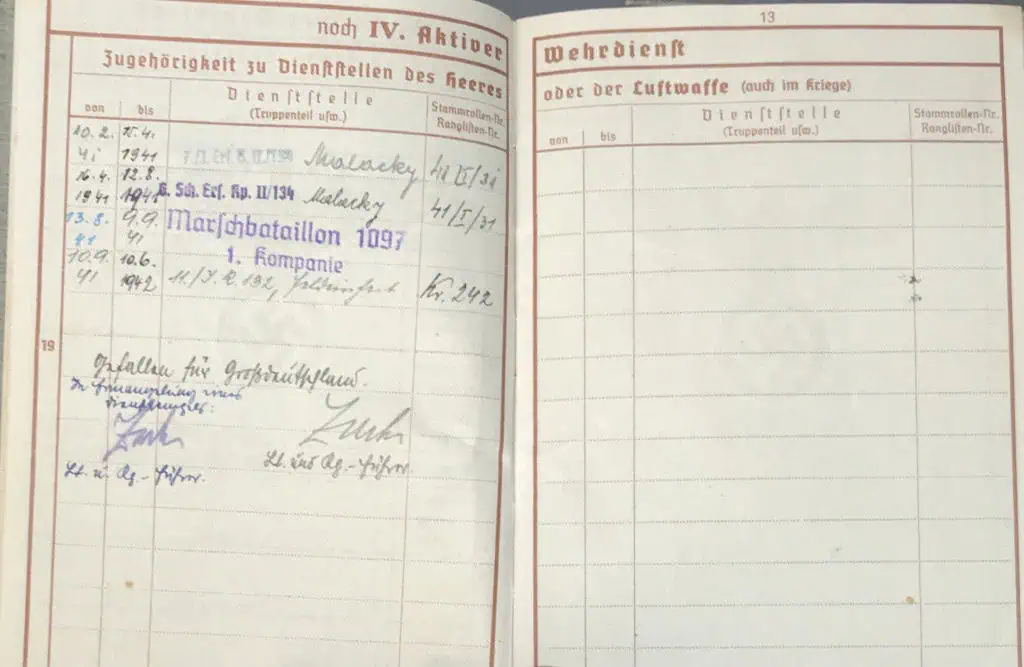 noch IV. Aktiver
Zugehörigkeit zu Dienststellen des Heeres
von bis Dienststelle (Truppenteil usw.) Stammrollen-Nr. Ranglisten-Nr.
10. 2. 15. 4.
41 1941 Malacky 41 II/31
16. 4. 12. 8.
1941 1941 G. Sch. Ers. Kp. II/134 Malacky 41/I/31
13. 8. 9. 9. Marschbataillon 1097
41 41 1. Kompanie
10. 9. 10. 6.
41 1942 11./I. R. 132, Kr. 242
19
Gefallen für Großdeutschland.
In Ermangelung eines
Dienstsiegels:
Lt. u. Kp.-Führer. Lt. und Kp.-Führer.
13
Wehrdienst
oder der Luftwaffe (auch im Kriege)
von bis Dienststelle (Truppenteil usw.) Stammrollen-Nr. Ranglisten-Nr.